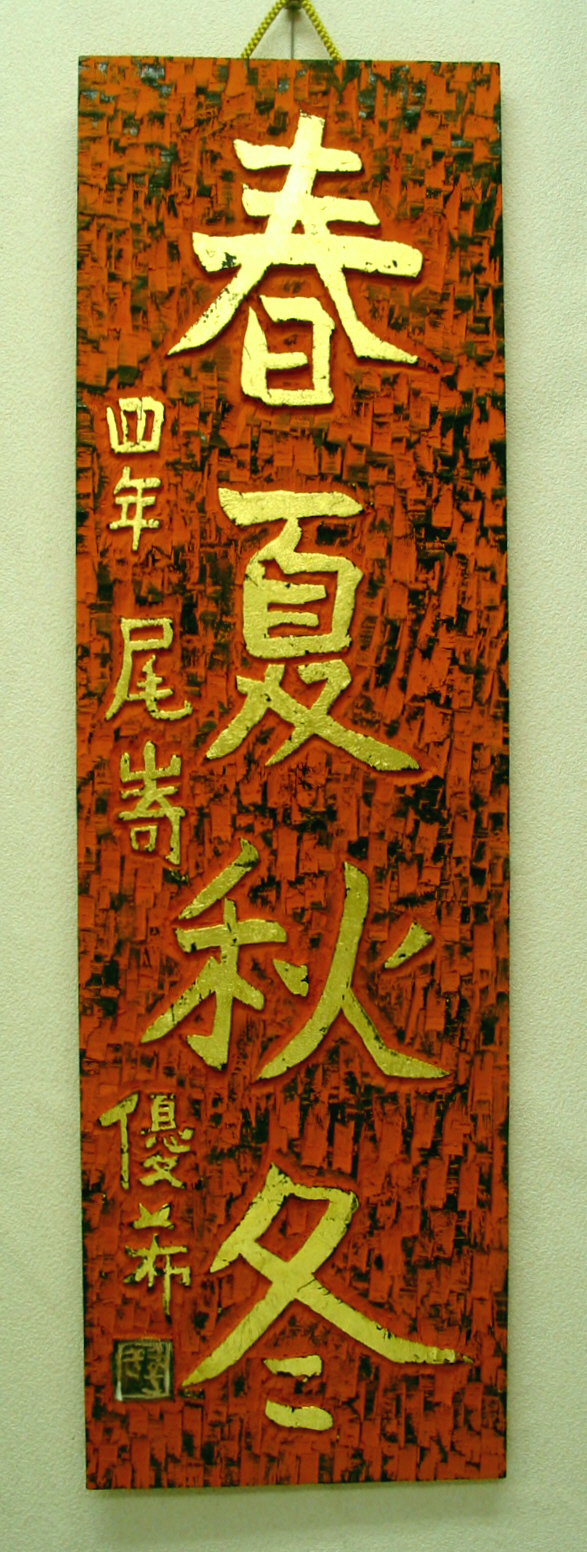 春夏秋冬
四年 尾嵜 優希